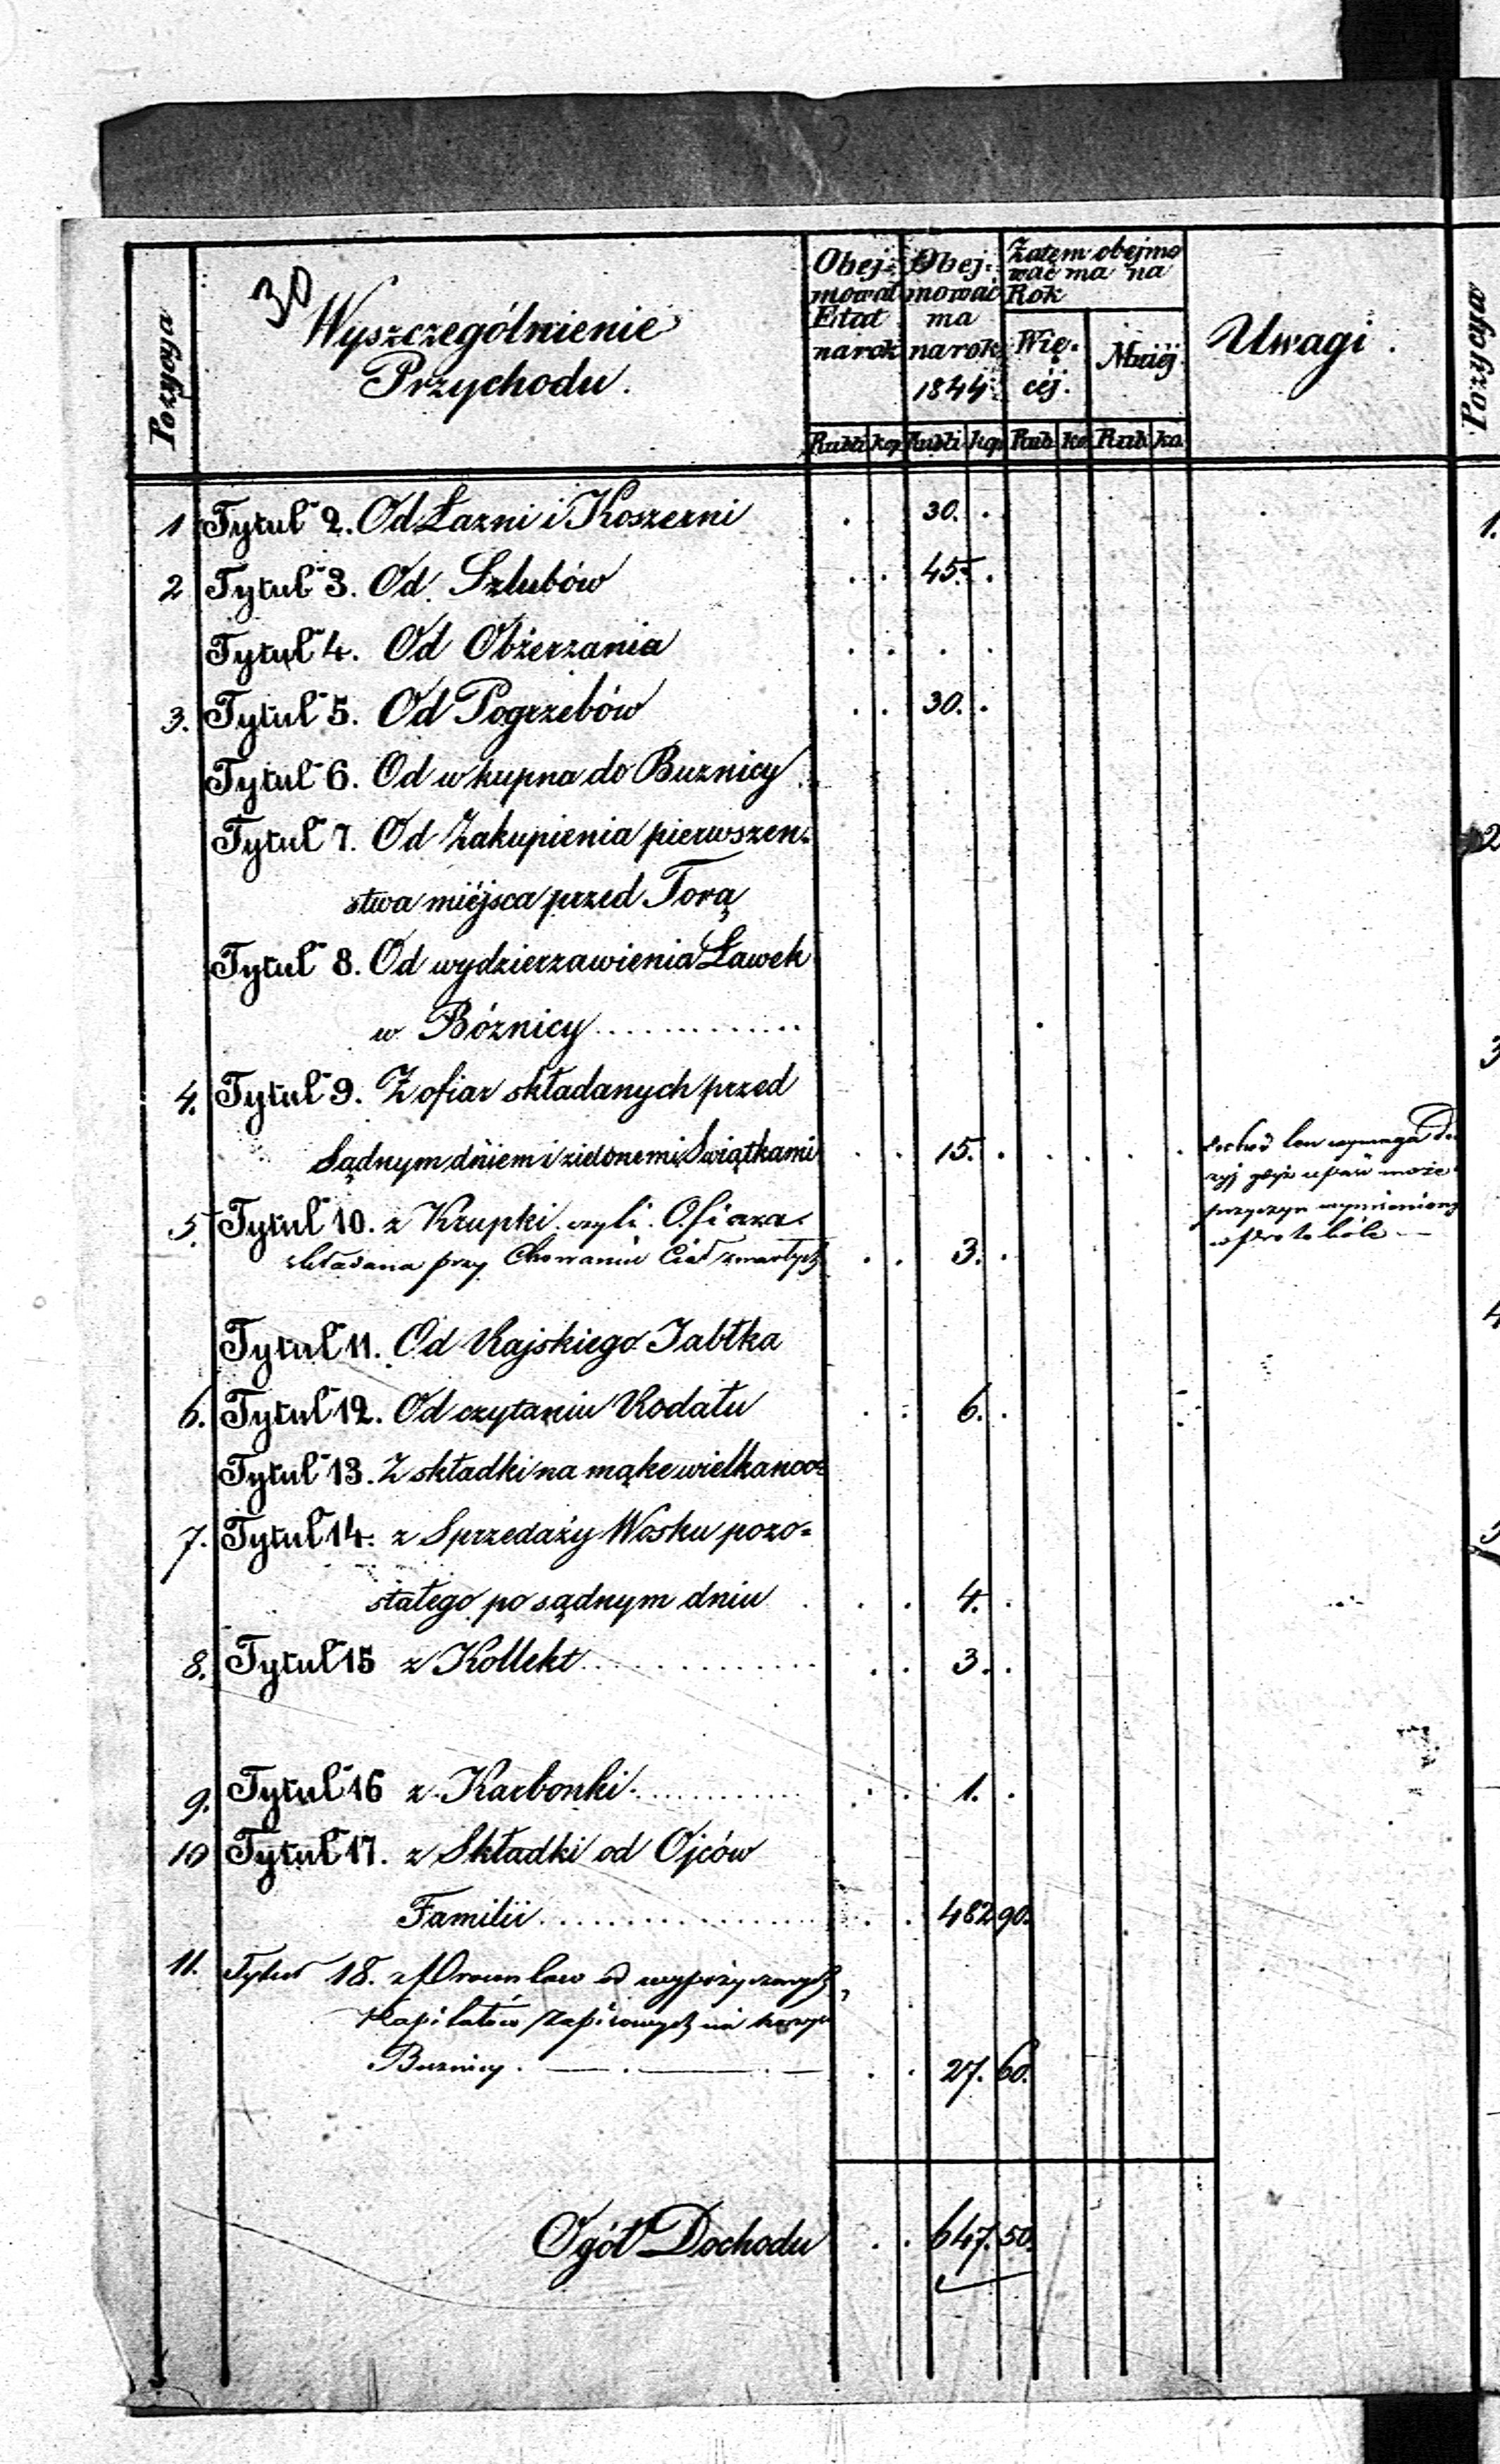 30
Pozycya
Wyszczególnienie
Przychodu.
Obej-
mował
Etat
na rok
Obej-
mować
ma
na rok
1844
Zatem obejmo
wać ma na
Rok
Wię-
céj.
Mniéj
Uwagi.
Pozycya
Rubli kop Rubli kop Rub ko Rub ko
1 Tytuł 2. Od Łazni i Koszerni . 30. . 1.
2 Tytuł 3. Od Szlubów . . 45. .
Tytuł 4. Od Obżerzania . . . .
3. Tytuł 5. Od Pogrzebów . . 30. .
Tytuł 6. Od wkupna do Buznicy
Tytuł 7. Od Zakupienia pierwszen- 2
stwa miéjsca przed Torą
Tytuł 8. Od wydzierzawienia Ławek
w Bóznicy .............
3
4. Tytuł 9. Z ofiar składanych przed
Sądnym dniem i zielonemi Swiątkami . . 15. .
Dochód ten wymaga
gdyż upaść może
przyczyn wymienionych
w protokóle —
5. Tytuł 10. z Krupki czyli Ofiara
składana przy Chowaniu Ciał zmarłych . . 3. .
Tytuł 11. Od Rajskiego Jabłka 4
6. Tytuł 12. Od czytaniu Rodału . . 6. .
Tytuł 13. Z składki na mąke wielkanoc=
7. Tytuł 14. z Sprzedaży Wosku pozo= 5
stałego po sądnym dniu . . . 4. .
8. Tytuł 15 z Kollekt ............. . . 3. .
9. Tytuł 16 z Karbonki ........... . . 1. .
10 Tytuł 17. z Składki od Ojców
Familii ................. . . 482 90.
11. Tytuł 18. z Procentów od wypożyczonych
Kapitałów zapisanych na
Buznicy. — . — . — . . 27. 60.
Ogół Dochodu . . 647. 50.